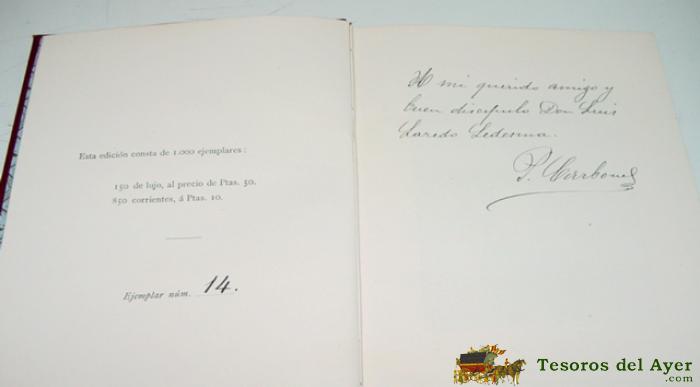 Esta edición consta de 1.000 ejemplares:
150 de lujo, al precio de Ptas. 50.
850 corrientes, á Ptas. 10.
Ejemplar núm. 14.
A mi querido amigo y
buen discípulo Don Luis
Laredo Ledesma.
P. Carbonell
Tesoros del Ayer
.com